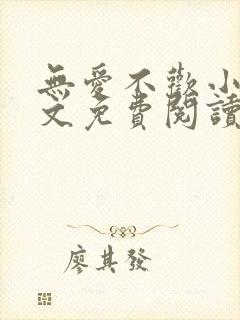 無愛不歡小
文免費閱讀
廖其發